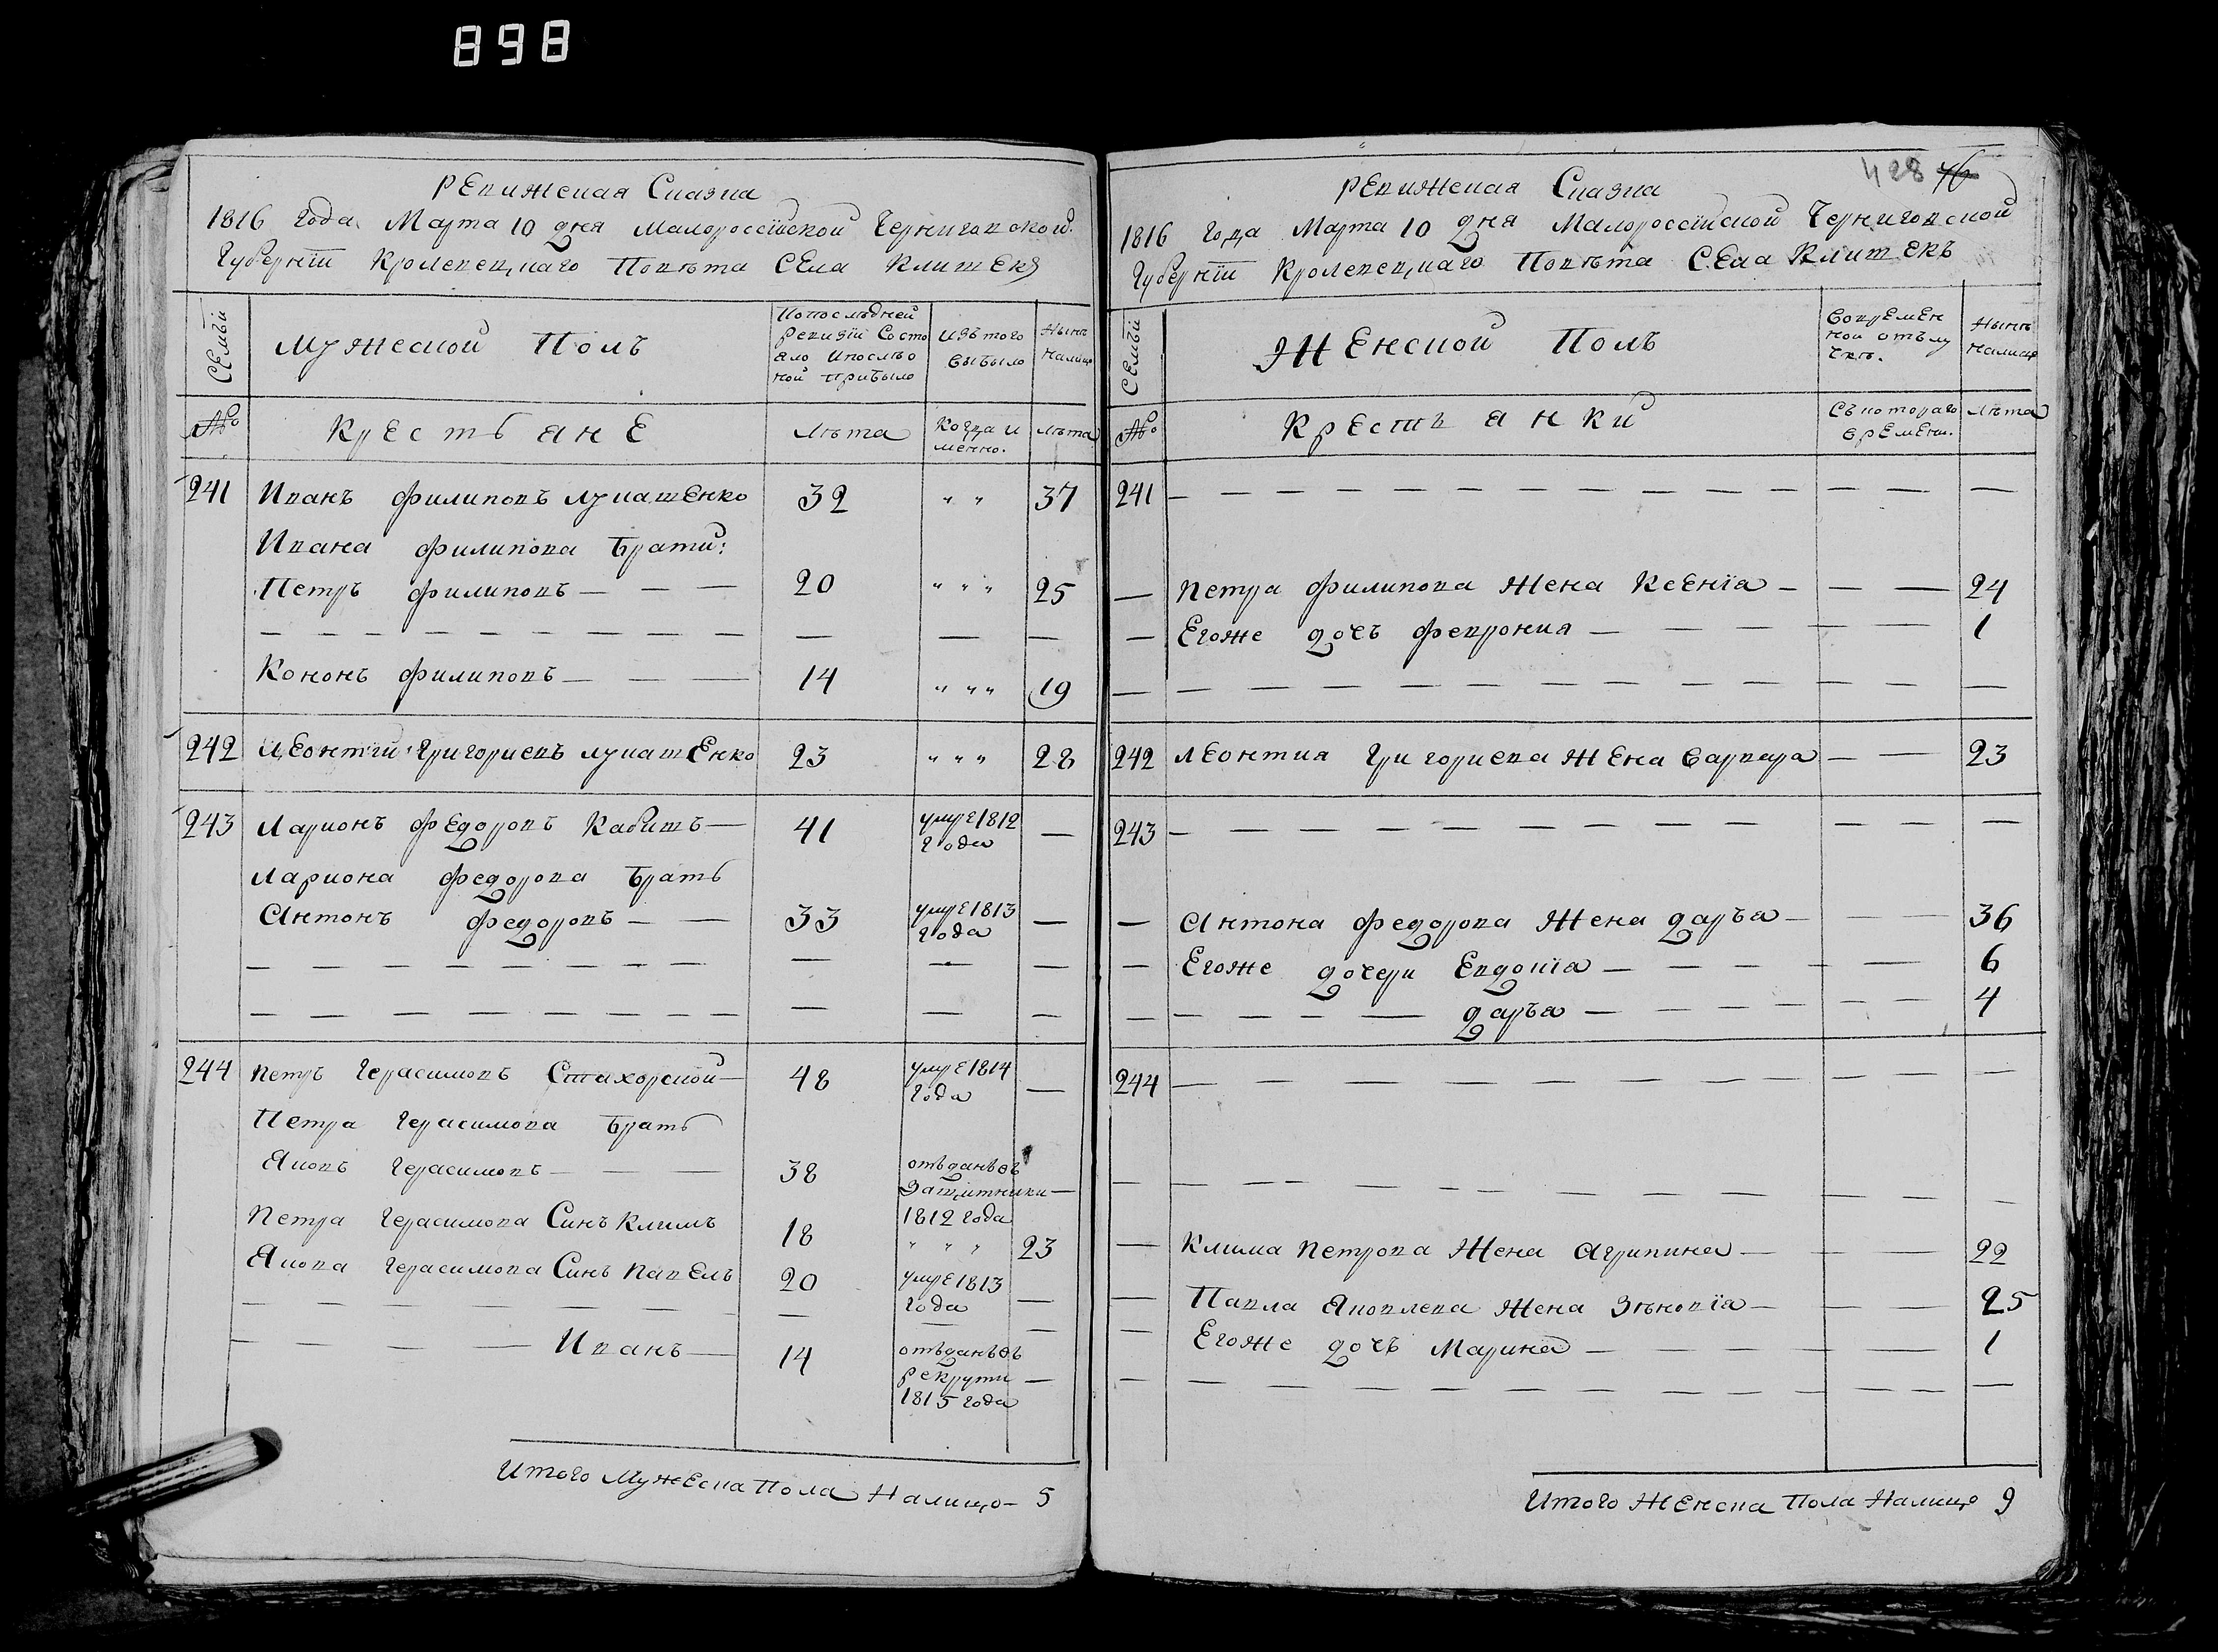 898
Ревижская Сказка
1816 года Марта 10 дня Малороссійской Черниговской
Губерніи Кролевецкаго Повѣта Села Клишекъ
Семьи
Мужеской Полъ
Попослѣдней
ревизіи Состо
яло и послѣ о
ной прибыло
Изъ того
выбыло
Нынѣ
налицо
№
Крестьяне
Лѣта
Когда и
менно.
Лѣта
241 Иванъ Филиповъ Лукашенко 32 " " 37
Ивана Филипова Брати:
Петръ Филиповъ — — — 20 " " " 25
— — — — — — — — — — — — —
Кононъ Филиповъ — — — 14 " " " 19
242 Леонтій Григориевъ Лукашенко 23 " " " 28
243 Ларионъ Федоровъ Кабишъ — 41 умре 1812 —
года
Лариона Федорова Братъ
Антонъ Федоровъ — — 33 умре 1813 —
года
— — — — — — — — — — —
— — — — — — — — — — —
244 Петръ Герасимовъ Стахорской — 48 умре 1814 —
года
Петра Герасимова Братъ
Яковъ Герасимовъ — — — 38 отъданъ въ
Защитники —
1812 года
Петра Герасимова Синъ Климъ 18 " " " 23
Якова Герасимова Синъ Павелъ 20 умре 1813
года —
— — — — — — — — —
— — — — Иванъ — 14 отъданъ въ
рекрути —
1815 года
Итого Мужеска Пола Налицо — 5
428 76
Ревижская Сказка
1816 года Марта 10 дня Малороссійской Черниговской
Губерніи Кролевецкаго Повѣта Села Клишекъ
Семьи
Женской Полъ
Вовремен
ной отълу
чкѣ.
Нынѣ
налицо
№
Крестьянки
Съ котораго
времени.
Лѣта
241 — — — — — — — — — — — — —
— Петра Филипова Жена Ксенія — — — 24
— Егоже дочъ Феврония — — — — — 1
— — — — — — — — — — — — —
242 Леонтия Григориева Жена Варвара — — 23
243 — — — — — — — — — — — — —
— Антона Федорова Жена Даръя — — — 36
— Егоже дочери Евдокія — — — — — 6
— — — — — Даръя — — — — — 4
244 — — — — — — — — — — — — —
— — — — — — — — — — — — —
— Клима Петрова Жена Агрипина — — — 22
— Павла Яковлева Жена Зѣновія — — — 25
— Егоже дочъ Марина — — — — — 1
— — — — — — — — — — — — —
Итого Женска Пола Налицо 9